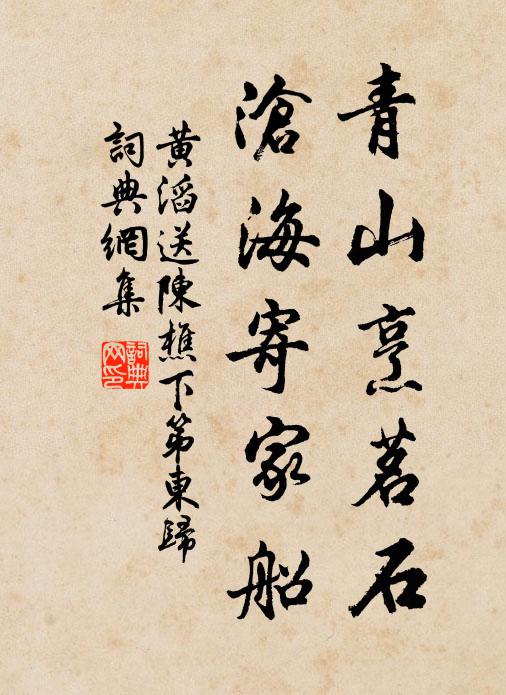 青山烹茗石
滄海寄家船
黃滔送陳樵下第東歸
詞典網集
詞典網印